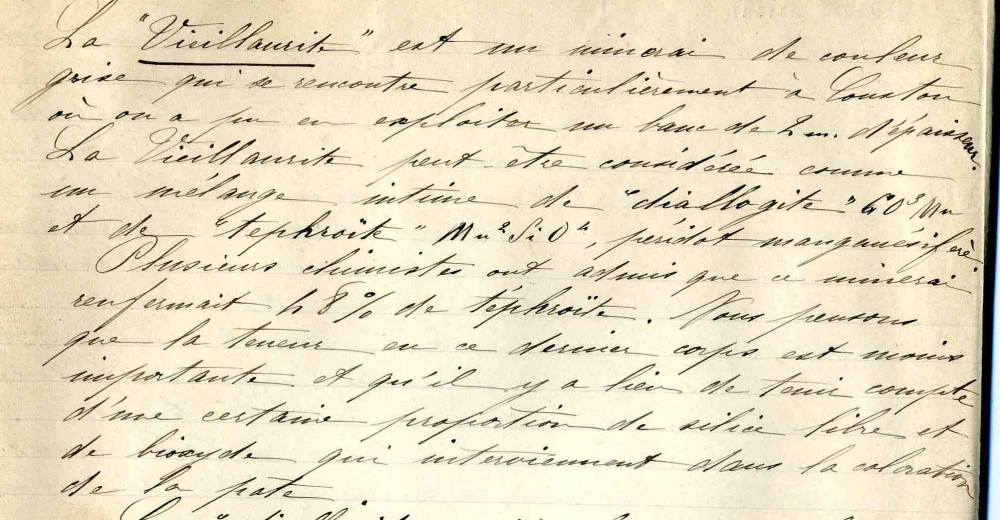 La "Vieillaurite" est un minerai de couleur
grise qui se rencontre particulièrement à Couston
où on a pu en exploiter un banc de 2 m. d'épaisseur.
La Vieillaurite peut-être considérée comme
un mélange intime de "diallogite" CO³ Mn
et de "téphroïte" Mn² Si O⁴, péridot manganésifère.
Plusieurs chimistes ont admis que ce minerai
renfermait 48 % de téphroïte. Nous pensons
que la teneur en ce dernier corps est moins
importante et qu'il y a lieu de tenir compte
d'une certaine proportion de silice libre et
de bioxyde qui interviennent dans la coloration
de la pate